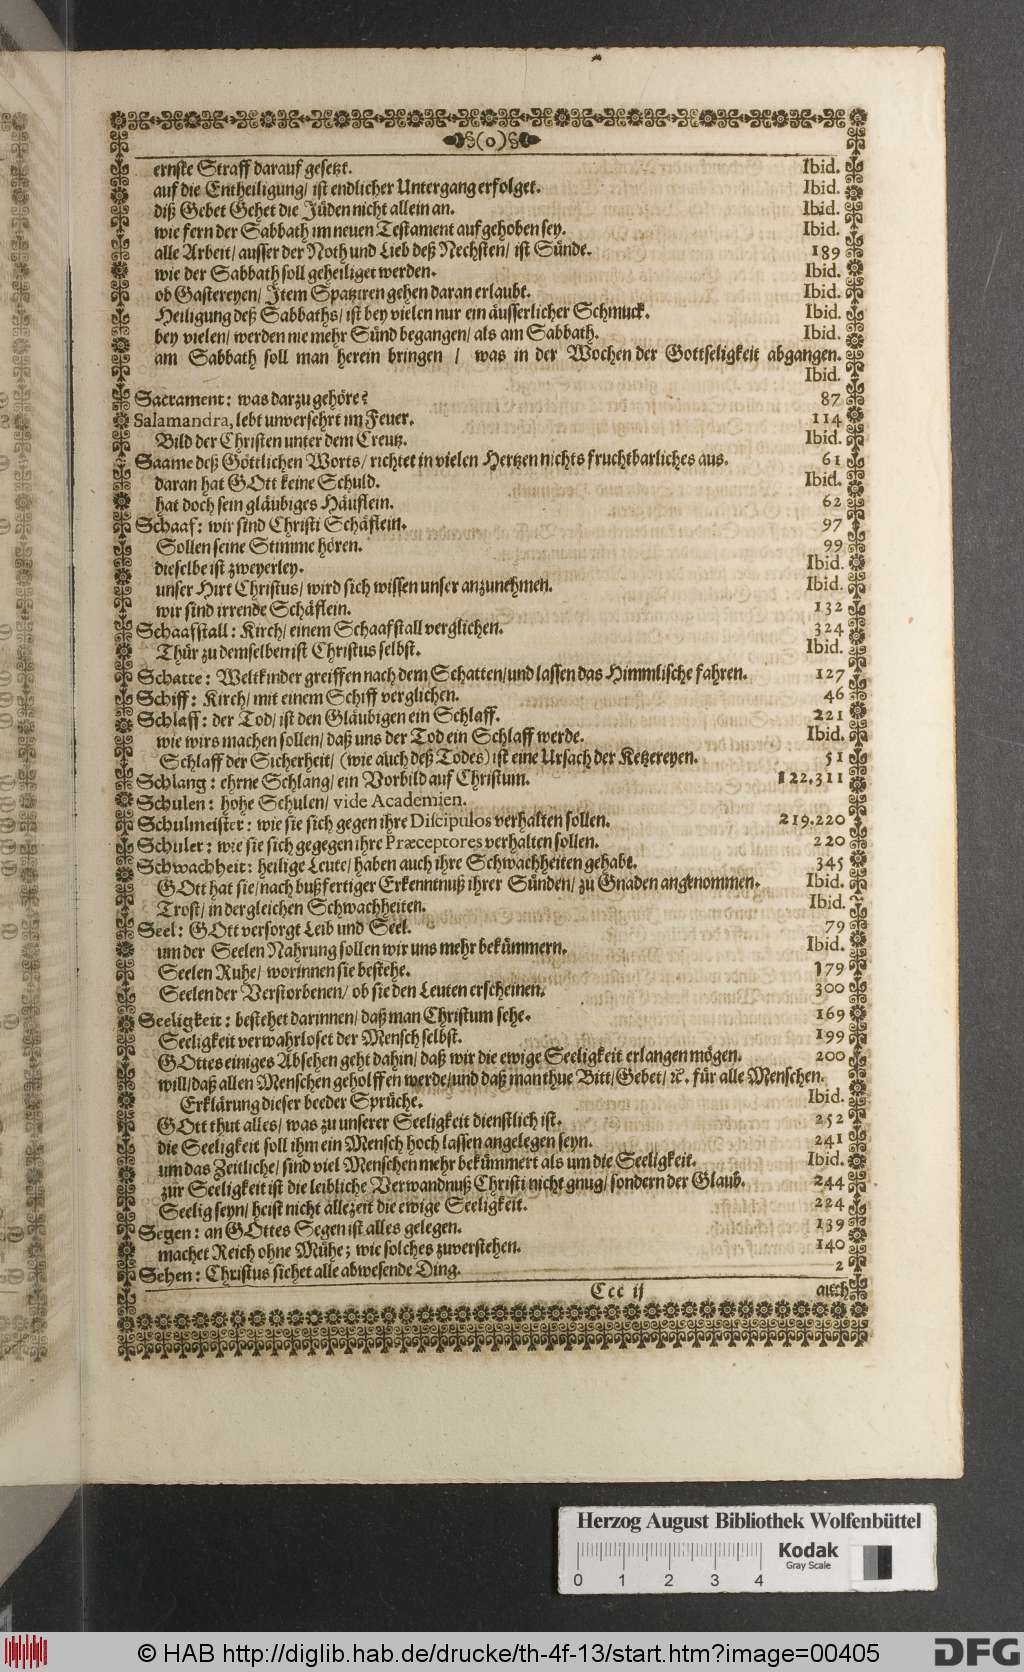 (o)
ernste Straff darauf gesetzt. Ibid.
auf die Entheiligung/ ist endlicher Untergang erfolget. Ibid.
diß Gebet Gehet die Jüden nicht allein an. Ibid.
wie fern der Sabbath im neuen Testament aufgehoben sey. Ibid.
alle Arbeit/ ausser der Noth und Lieb deß Nechsten/ ist Sünde. 189
wie der Sabbath soll geheiliget werden. Ibid.
ob Gastereyen/ Jtem Spatziren gehen daran erlaubt. Ibid.
Heiligung deß Sabbaths/ ist bey vielen nur ein äusserlicher Schmuck. Ibid.
bey vielen/ werden nie mehr Sünd begangen/ als am Sabbath. Ibid.
am Sabbath soll man herein bringen / was in der Wochen der Gottseligkeit abgangen.
Ibid.
Sacrament: was darzu gehöre? 87
Salamandra, lebt unversehrt im Feuer. 114
Bild der Christen unter dem Creutz. Ibid.
Saame deß Göttlichen Worts/ richtet in vielen Hertzen nichts fruchtbarliches aus. 61
daran hat GOtt keine Schuld. Ibid.
hat doch sein gläubiges Häuflein. 62
Schaaf: wir sind Christi Schäflein. 97
Sollen seine Stimme hören. 99
dieselbe ist zweyerley. Ibid.
unser Hirt Christus/ wird sich wissen unser anzunehmen. Ibid.
wir sind irrende Schäflein. 132
Schaafstall: Kirch/ einem Schaafstall verglichen. 324
Thür zu demselben ist Christus selbst. Ibid.
Schatte: Weltkinder greiffen nach dem Schatten/und lassen das Himmlische fahren. 127
Schiff: Kirch/ mit einem Schiff verglichen. 46
Schlaff: der Tod/ ist den Gläubigen ein Schlaff. 221
wie wirs machen sollen/ daß uns der Tod ein Schlaff werde. Ibid.
Schlaff der Sicherheit/ (wie auch deß Todes) ist eine Ursach der Ketzereyen. 51
Schlang: ehrne Schlang/ ein Vorbild auf Christum. 122.311
Schulen: hohe Schulen/ vide Academien.
Schulmeister: wie sie sich gegen ihre Discipulos verhalten sollen. 219.220
Schuler: wie sie sich gegegen ihre Præceptores verhalten sollen. 220
Schwachheit: heilige Leute/ haben auch ihre Schwachheiten gehabt. 345
GOtt hat sie/ nach bußfertiger Erkenntnuß ihrer Sünden/ zu Gnaden angenommen. Ibid.
Trost/ in dergleichen Schwachheiten. Ibid.
Seel: GOtt versorgt Leib und Seel. 79
um der Seelen Nahrung sollen wir uns mehr bekümmern. Ibid.
Seelen Ruhe/ worinnen sie bestehe. 179
Seelen der Verstorbenen/ ob sie den Leuten erscheinen. 300
Seeligkeit: bestehet darinnen/ daß man Christum sehe. 169
Seeligkeit verwahrloset der Mensch selbst. 199
GOttes einiges Absehen geht dahin/ daß wir die ewige Seeligkeit erlangen mögen. 200
will/ daß allen Menschen geholffen werde/und daß man thue Bitt/ Gebet/ ꝛc. für alle Menschen.
Erklärung dieser beeder Sprüche. Ibid.
GOtt thut alles/ was zu unserer Seeligkeit dienstlich ist. 252
die Seeligkeit soll ihm ein Mensch hoch lassen angelegen seyn. 241
um das Zeitliche/ sind viel Menschen mehr bekümmert als um die Seeligkeit. Ibid.
zur Seeligkeit ist die leibliche Verwandnuß Christi nicht gnug/ sondern der Glaub. 244
Seelig seyn/ heist nicht allezeit die ewige Seeligkeit. 224
Segen: an GOttes Segen ist alles gelegen. 139
machet Reich ohne Mühe; wie solches zuverstehen. 140
Sehen: Christus sichet alle abwesende Ding. 2
Ccc ij auch
Herzog August Bibliothek Wolfenbüttel
Kodak
Gray Scale
0 1 2 3 4
© HAB http://diglib.hab.de/drucke/th-4f-13/start.htm?image=00405
DFG